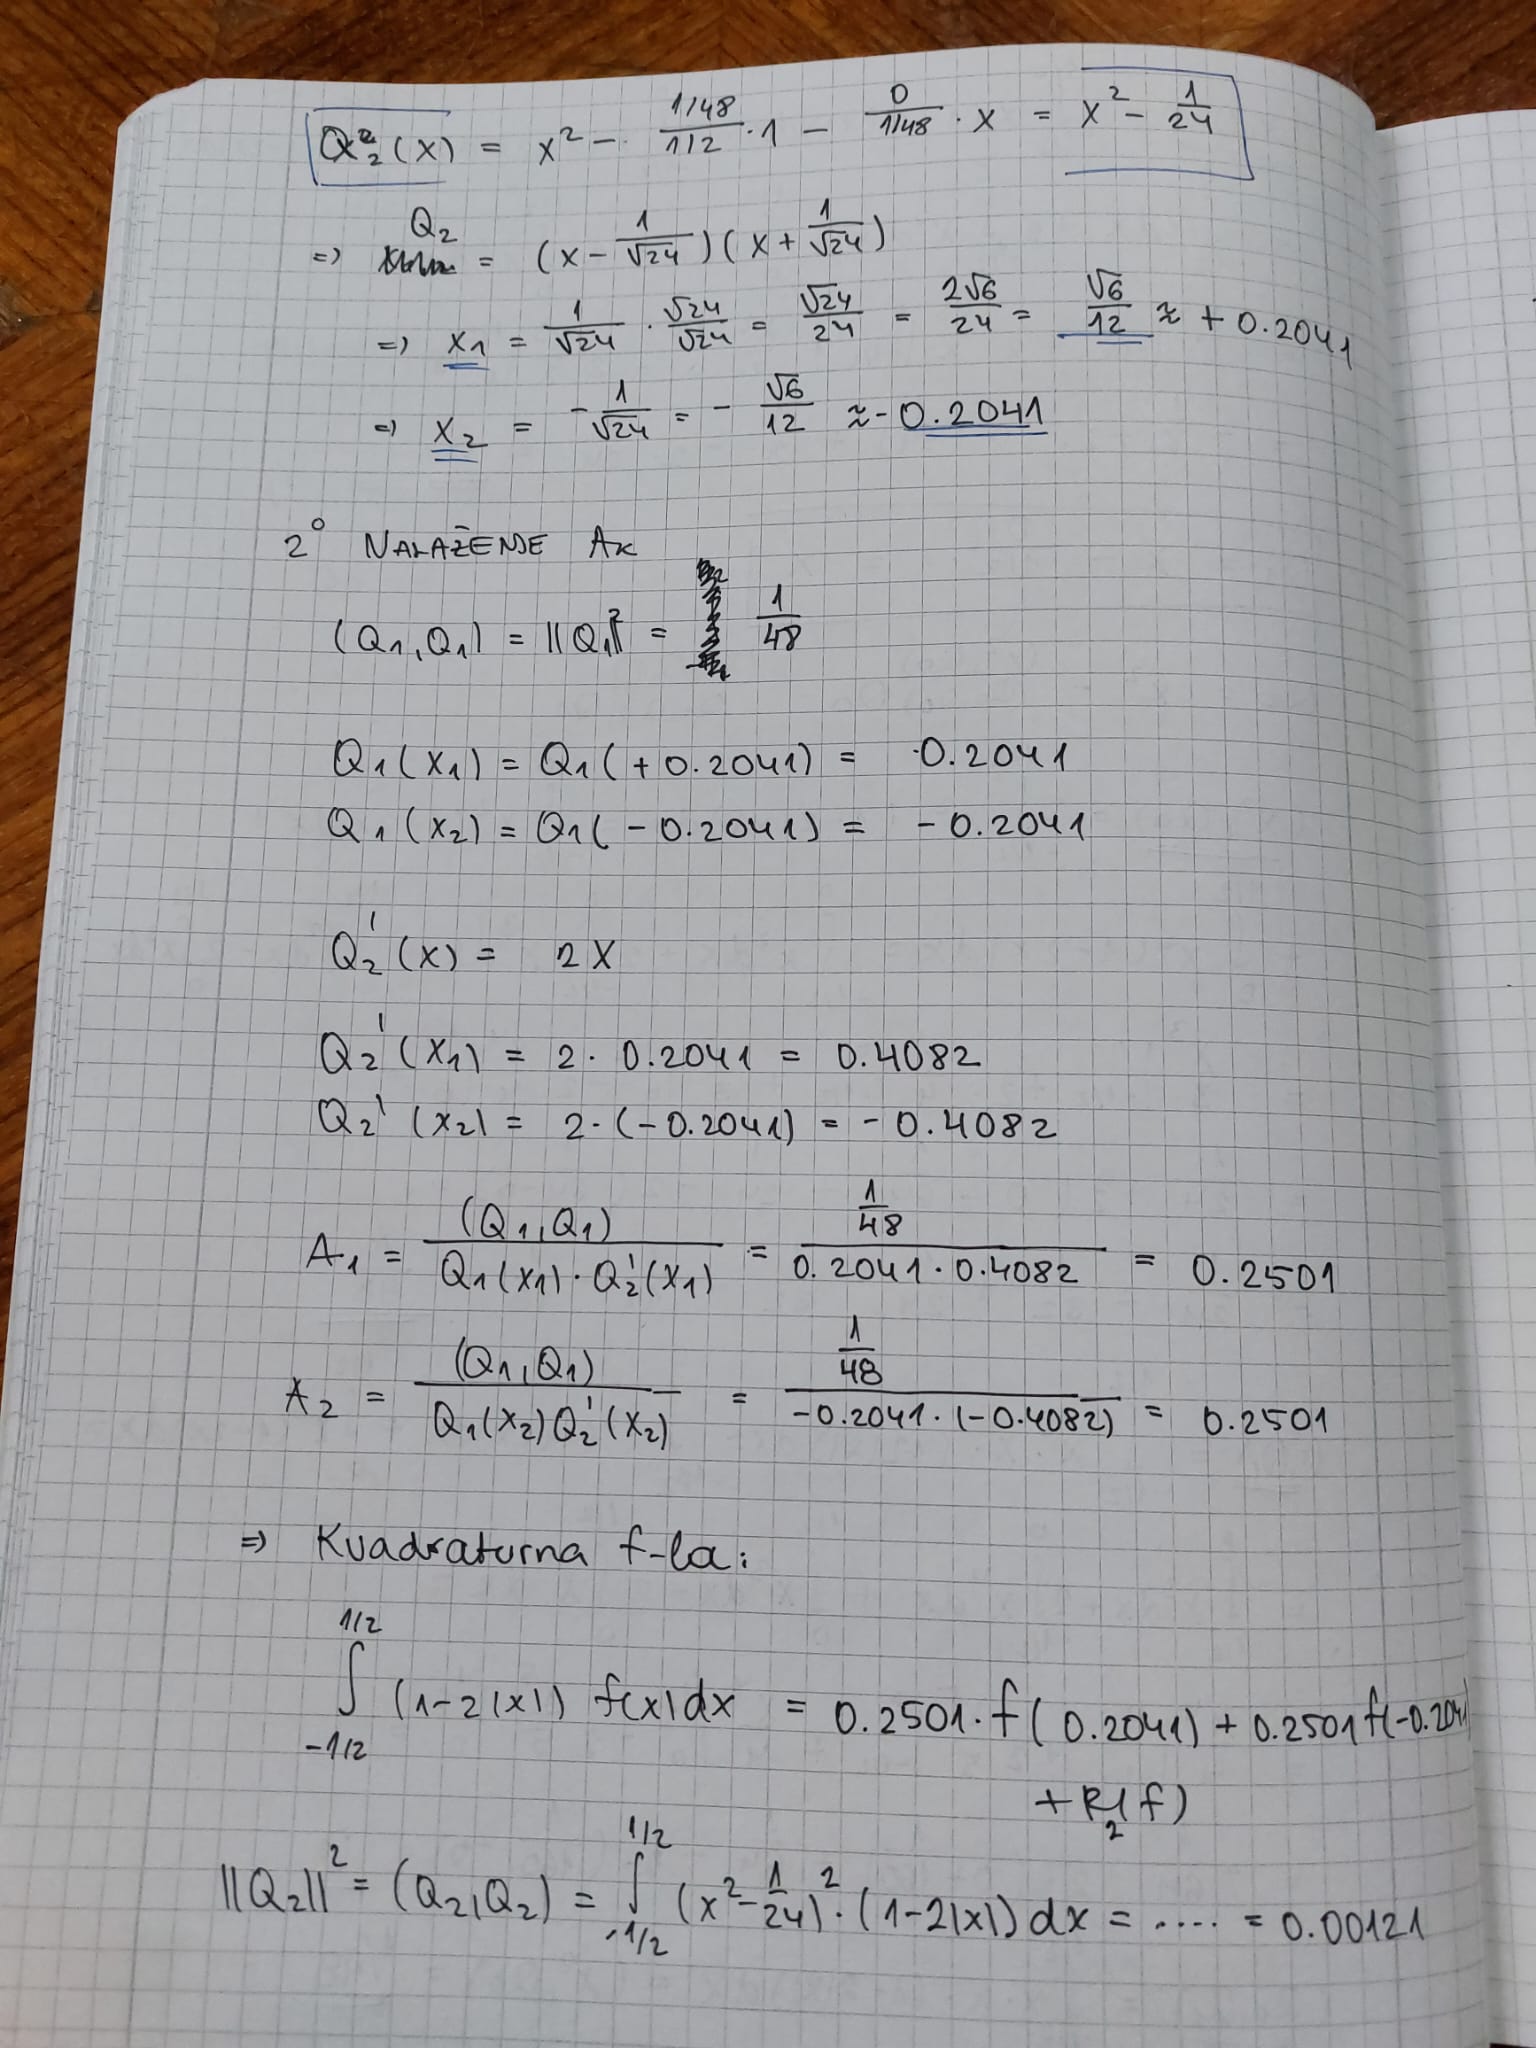 Q₂²(x) = x² - (1/48)/(1/2) · 1 - 0/(1/48) · x = x² - 1/24
Q₂
=> = (x - 1/√24)(x + 1/√24)
=> x₁ = 1/√24 · √24/√24 = √24/24 = 2√6/24 = √6/12 ≈ + 0.2041
=> x₂ = -1/√24 = - √6/12 ≈ - 0.2041
2° NALAŽENJE Aₖ
(Q₁, Q₁) = ||Q₁||² = 1/48
Q₁(x₁) = Q₁(+0.2041) = 0.2041
Q₁(x₂) = Q₁(-0.2041) = -0.2041
Q₂'(x) = 2x
Q₂'(x₁) = 2 · 0.2041 = 0.4082
Q₂'(x₂) = 2 · (-0.2041) = -0.4082
A₁ = (Q₁, Q₁)/(Q₁(x₁) · Q₂'(x₁)) = (1/48)/(0.2041 · 0.4082) = 0.2501
A₂ = (Q₁, Q₁)/(Q₁(x₂) Q₂'(x₂)) = (1/48)/(-0.2041 · (-0.4082)) = 0.2501
=> Kvadraturna f-la:
∫_{-1/2}^{1/2} (1-2|x|) f(x)dx = 0.2501 · f(0.2041) + 0.2501 f(-0.2041)
+ R₂(f)
||Q₂||² = (Q₂, Q₂) = ∫_{-1/2}^{1/2} (x² - 1/24)² · (1-2|x|) dx = .... = 0.00121